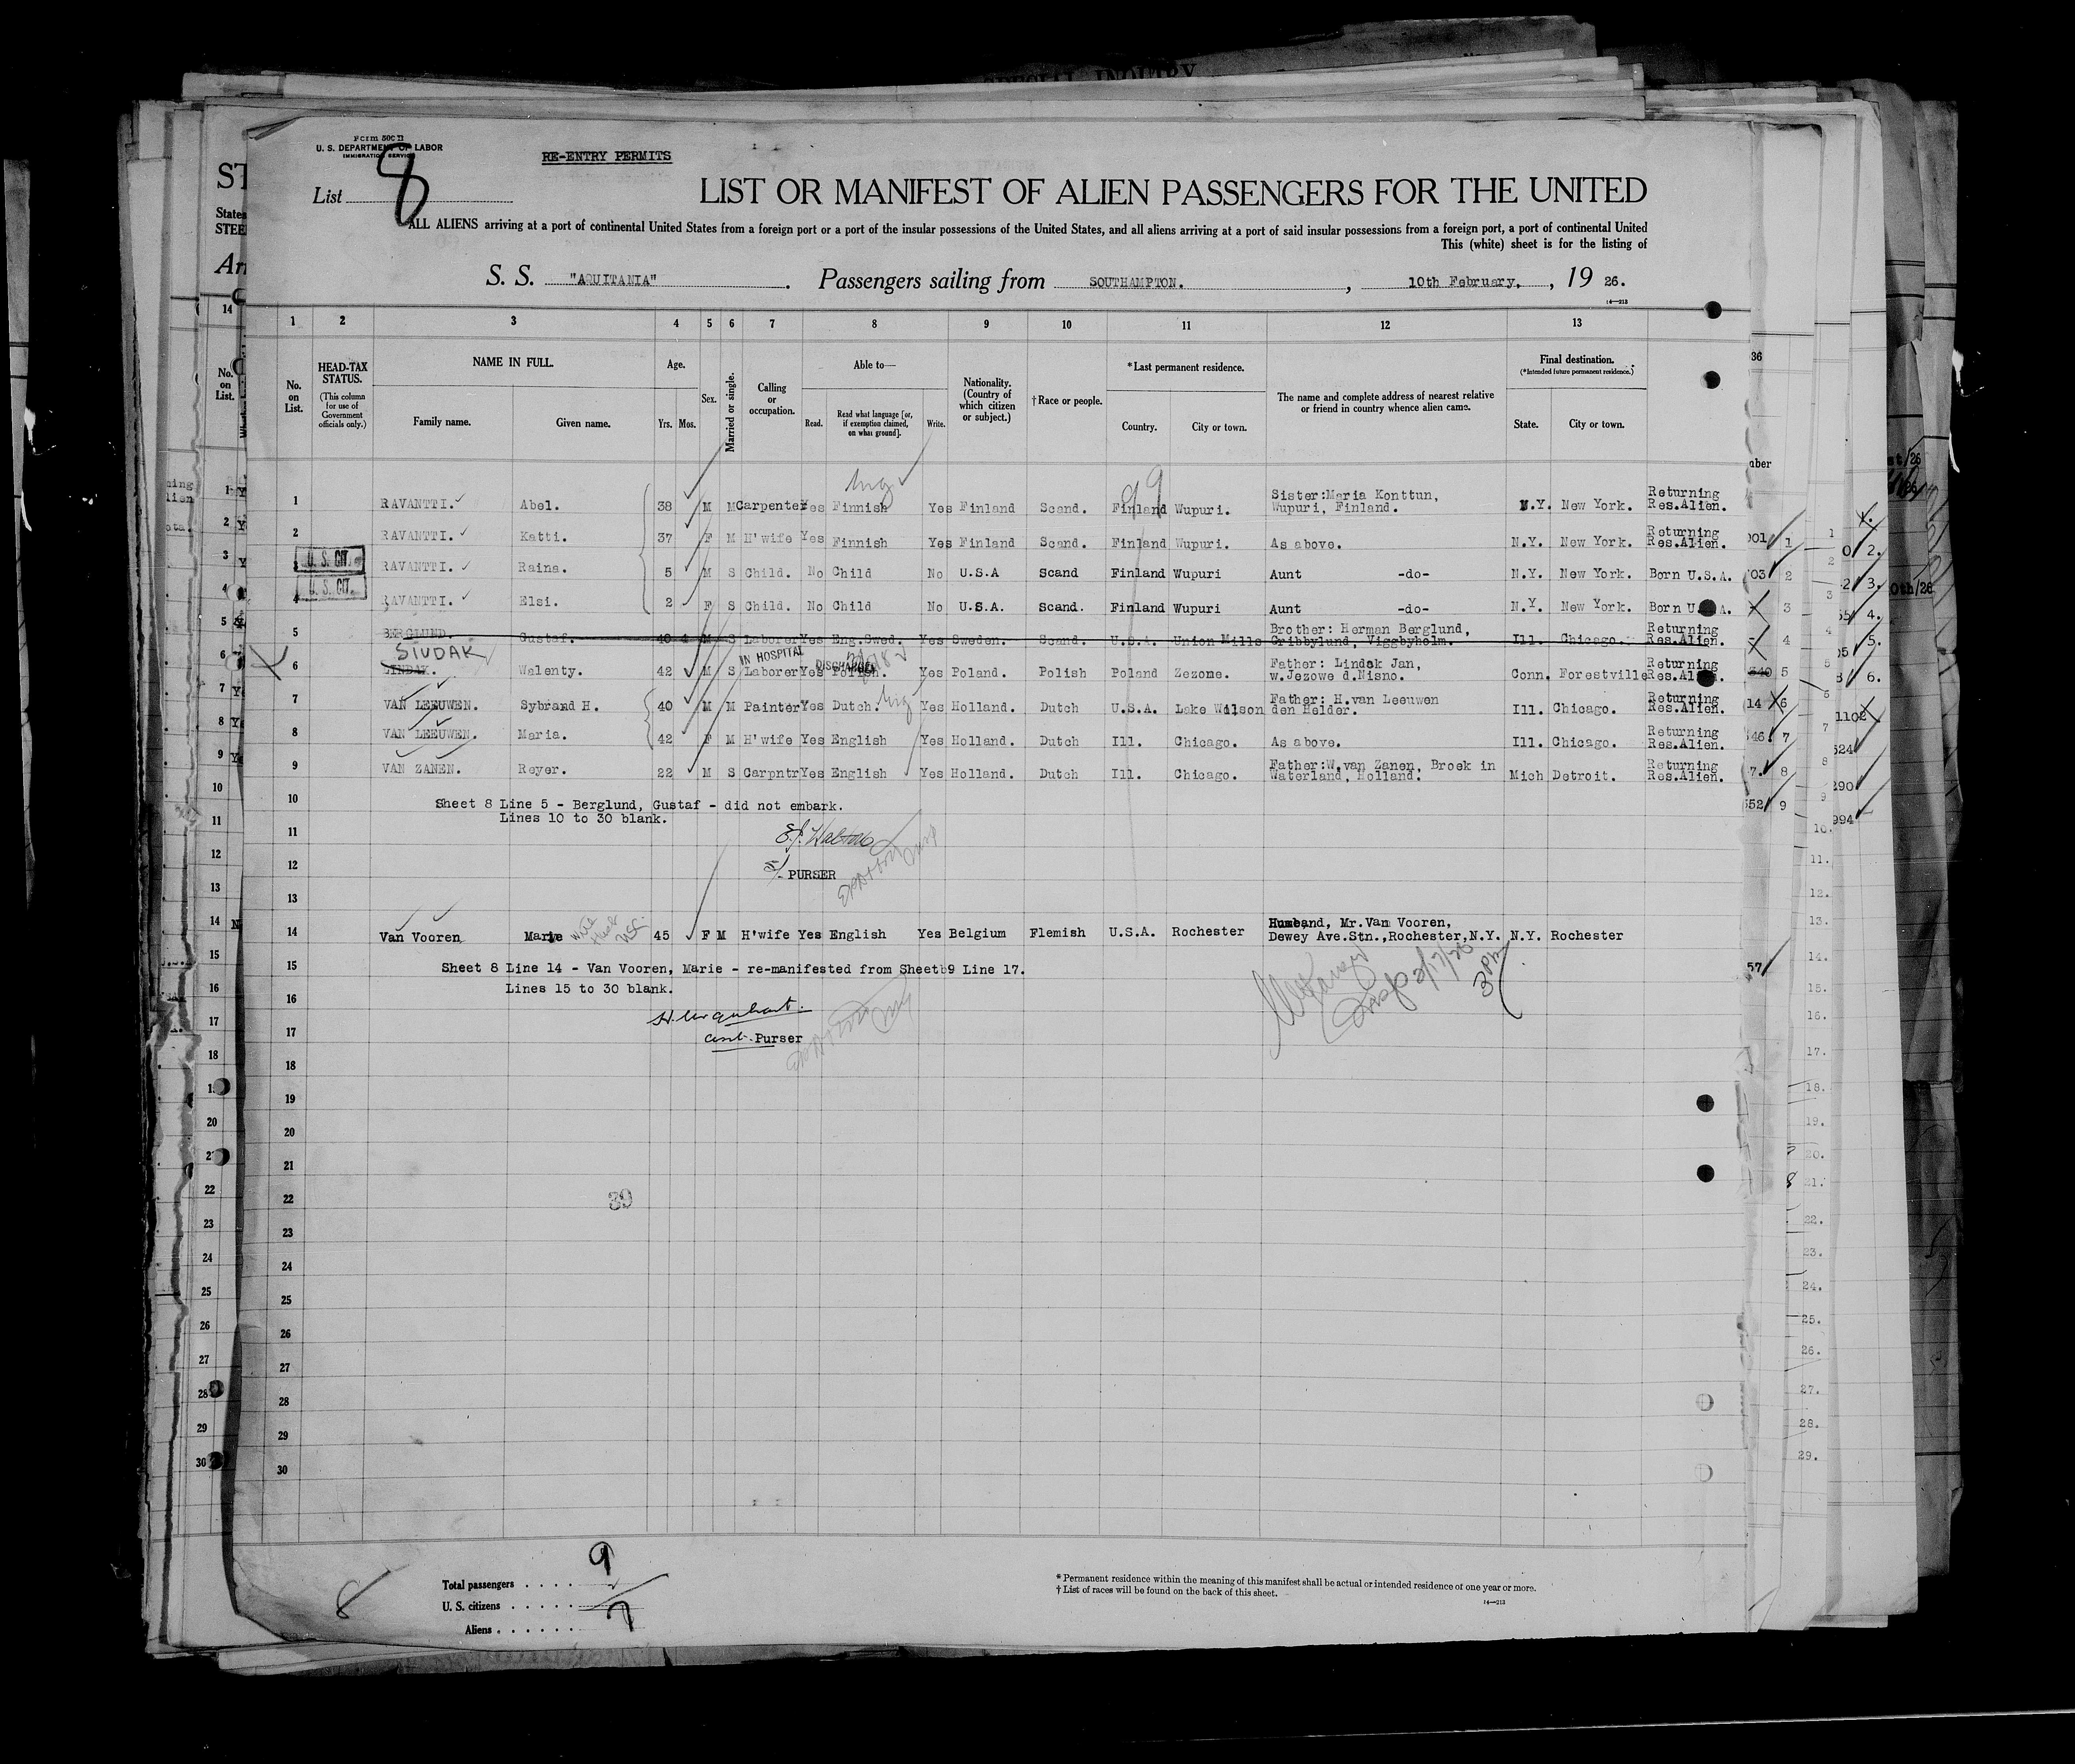 SPECIAL INQUIRY
Form 500 B
U. S. DEPARTMENT OF LABOR
IMMIGRATION SERVICE
RE-ENTRY PERMITS
List 8
LIST OR MANIFEST OF ALIEN PASSENGERS FOR THE UNITED
ALL ALIENS arriving at a port of continental United States from a foreign port or a port of the insular possessions of the United States, and all aliens arriving at a port of said insular possessions from a foreign port, a port of continental United
This (white) sheet is for the listing of
S. S. "AQUITANIA" . Passengers sailing from SOUTHAMPTON. , 10th February. , 19 26.
14—213
1 2 3 4 5 6 7 8 9 10 11 12 13
No. on List.
HEAD-TAX STATUS.
(This column for use of Government officials only.)
NAME IN FULL.
Family name. Given name.
Age.
Yrs. Mos.
Sex.
Married or single.
Calling or occupation.
Able to—
Read. Read what language [or, if exemption claimed, on what ground]. Write.
Nationality. (Country of which citizen or subject.)
†Race or people.
*Last permanent residence.
Country. City or town.
The name and complete address of nearest relative or friend in country whence alien came.
Final destination.
(*Intended future permanent residence.)
State. City or town.
1 RAVANTTI. Abel. 38 M M Carpenter Yes Finnish Yes Finland Scand. Finland Wupuri. Sister:Maria Konttun, Wupuri, Finland. N.Y. New York. Returning Res.Alien.
2 RAVANTTI. Katti. 37 F M H'wife Yes Finnish Yes Finland Scand. Finland Wupuri. As above. N.Y. New York. Returning Res.Alien.
3 U. S. CIT. RAVANTTI. Raina. 5 M S Child. No Child No U.S.A Scand Finland Wupuri Aunt -do- N.Y. New York. Born U.S.A.
4 U. S. CIT. RAVANTTI. Elsi. 2 F S Child. No Child No U.S.A. Scand. Finland Wupuri Aunt -do- N.Y. New York. Born U.S.A.
5 BERGLUND. Gustaf. 40 4 M S Laborer Yes Eng.Swed. Yes Sweden. Scand. U.S.A. Union Mills Brother: Herman Berglund, Gribbylund, Viggbyholm. Ill. Chicago. Returning Res.Alien.
SIUDAK
IN HOSPITAL
DISCHARGED
6 LINDAK. Walenty. 42 M S Laborer Yes Polish. Yes Poland. Polish Poland Zezome. Father: Lindak Jan, w.Jezowe d.Nisno. Conn. Forestville Returning Res.Alien.
7 VAN LEEUWEN. Sybrand H. 40 M M Painter Yes Dutch. Yes Holland. Dutch U.S.A. Lake Wilson Father: H.van Leeuwen den Helder. Ill. Chicago. Returning Res.Alien.
8 VAN LEEUWEN. Maria. 42 F M H'wife Yes English Yes Holland. Dutch Ill. Chicago. As above. Ill. Chicago. Returning Res.Alien.
9 VAN ZANEN. Reyer. 22 M S Carpntr Yes English Yes Holland. Dutch Ill. Chicago. Father:W.van Zanen, Broek in Waterland, Holland. Mich Detroit. Returning Res.Alien.
10 Sheet 8 Line 5 - Berglund, Gustaf - did not embark.
Lines 10 to 30 blank.
11
12 PURSER
13
14 Van Vooren Marie 45 F M H'wife Yes English Yes Belgium Flemish U.S.A. Rochester Husband, Mr.Van Vooren, Dewey Ave.Stn.,Rochester,N.Y. N.Y. Rochester
15 Sheet 8 Line 14 - Van Vooren, Marie - re-manifested from Sheet 9 Line 17.
Lines 15 to 30 blank.
16
H. Urquhart.
17 asst. Purser
18
19
20
21
22 39
23
24
25
26
27
28
29
30
8
Total passengers 9
U. S. citizens
Aliens 7
* Permanent residence within the meaning of this manifest shall be actual or intended residence of one year or more.
† List of races will be found on the back of this sheet.
14—213